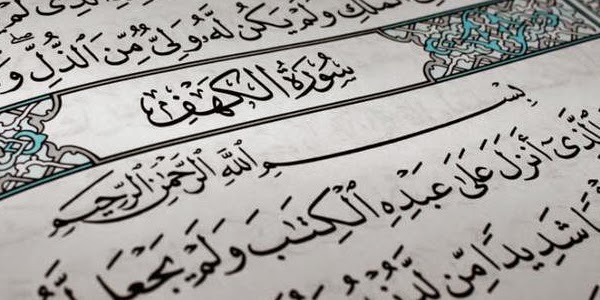 ٱلْمُلْكِ وَلَمْ يَكُن لَّهُۥ وَلِىٌّ مِّنَ ٱلذُّلِّ ۖ
سُورَةُ الكَهْفِ
بِسْمِ ٱللَّهِ ٱلرَّحْمَٰنِ ٱلرَّحِيمِ
ٱلَّذِىٓ أَنزَلَ عَلَىٰ عَبْدِهِ ٱلْكِتَٰبَ وَلَمْ يَجْعَل
شَدِيدًا مِّن